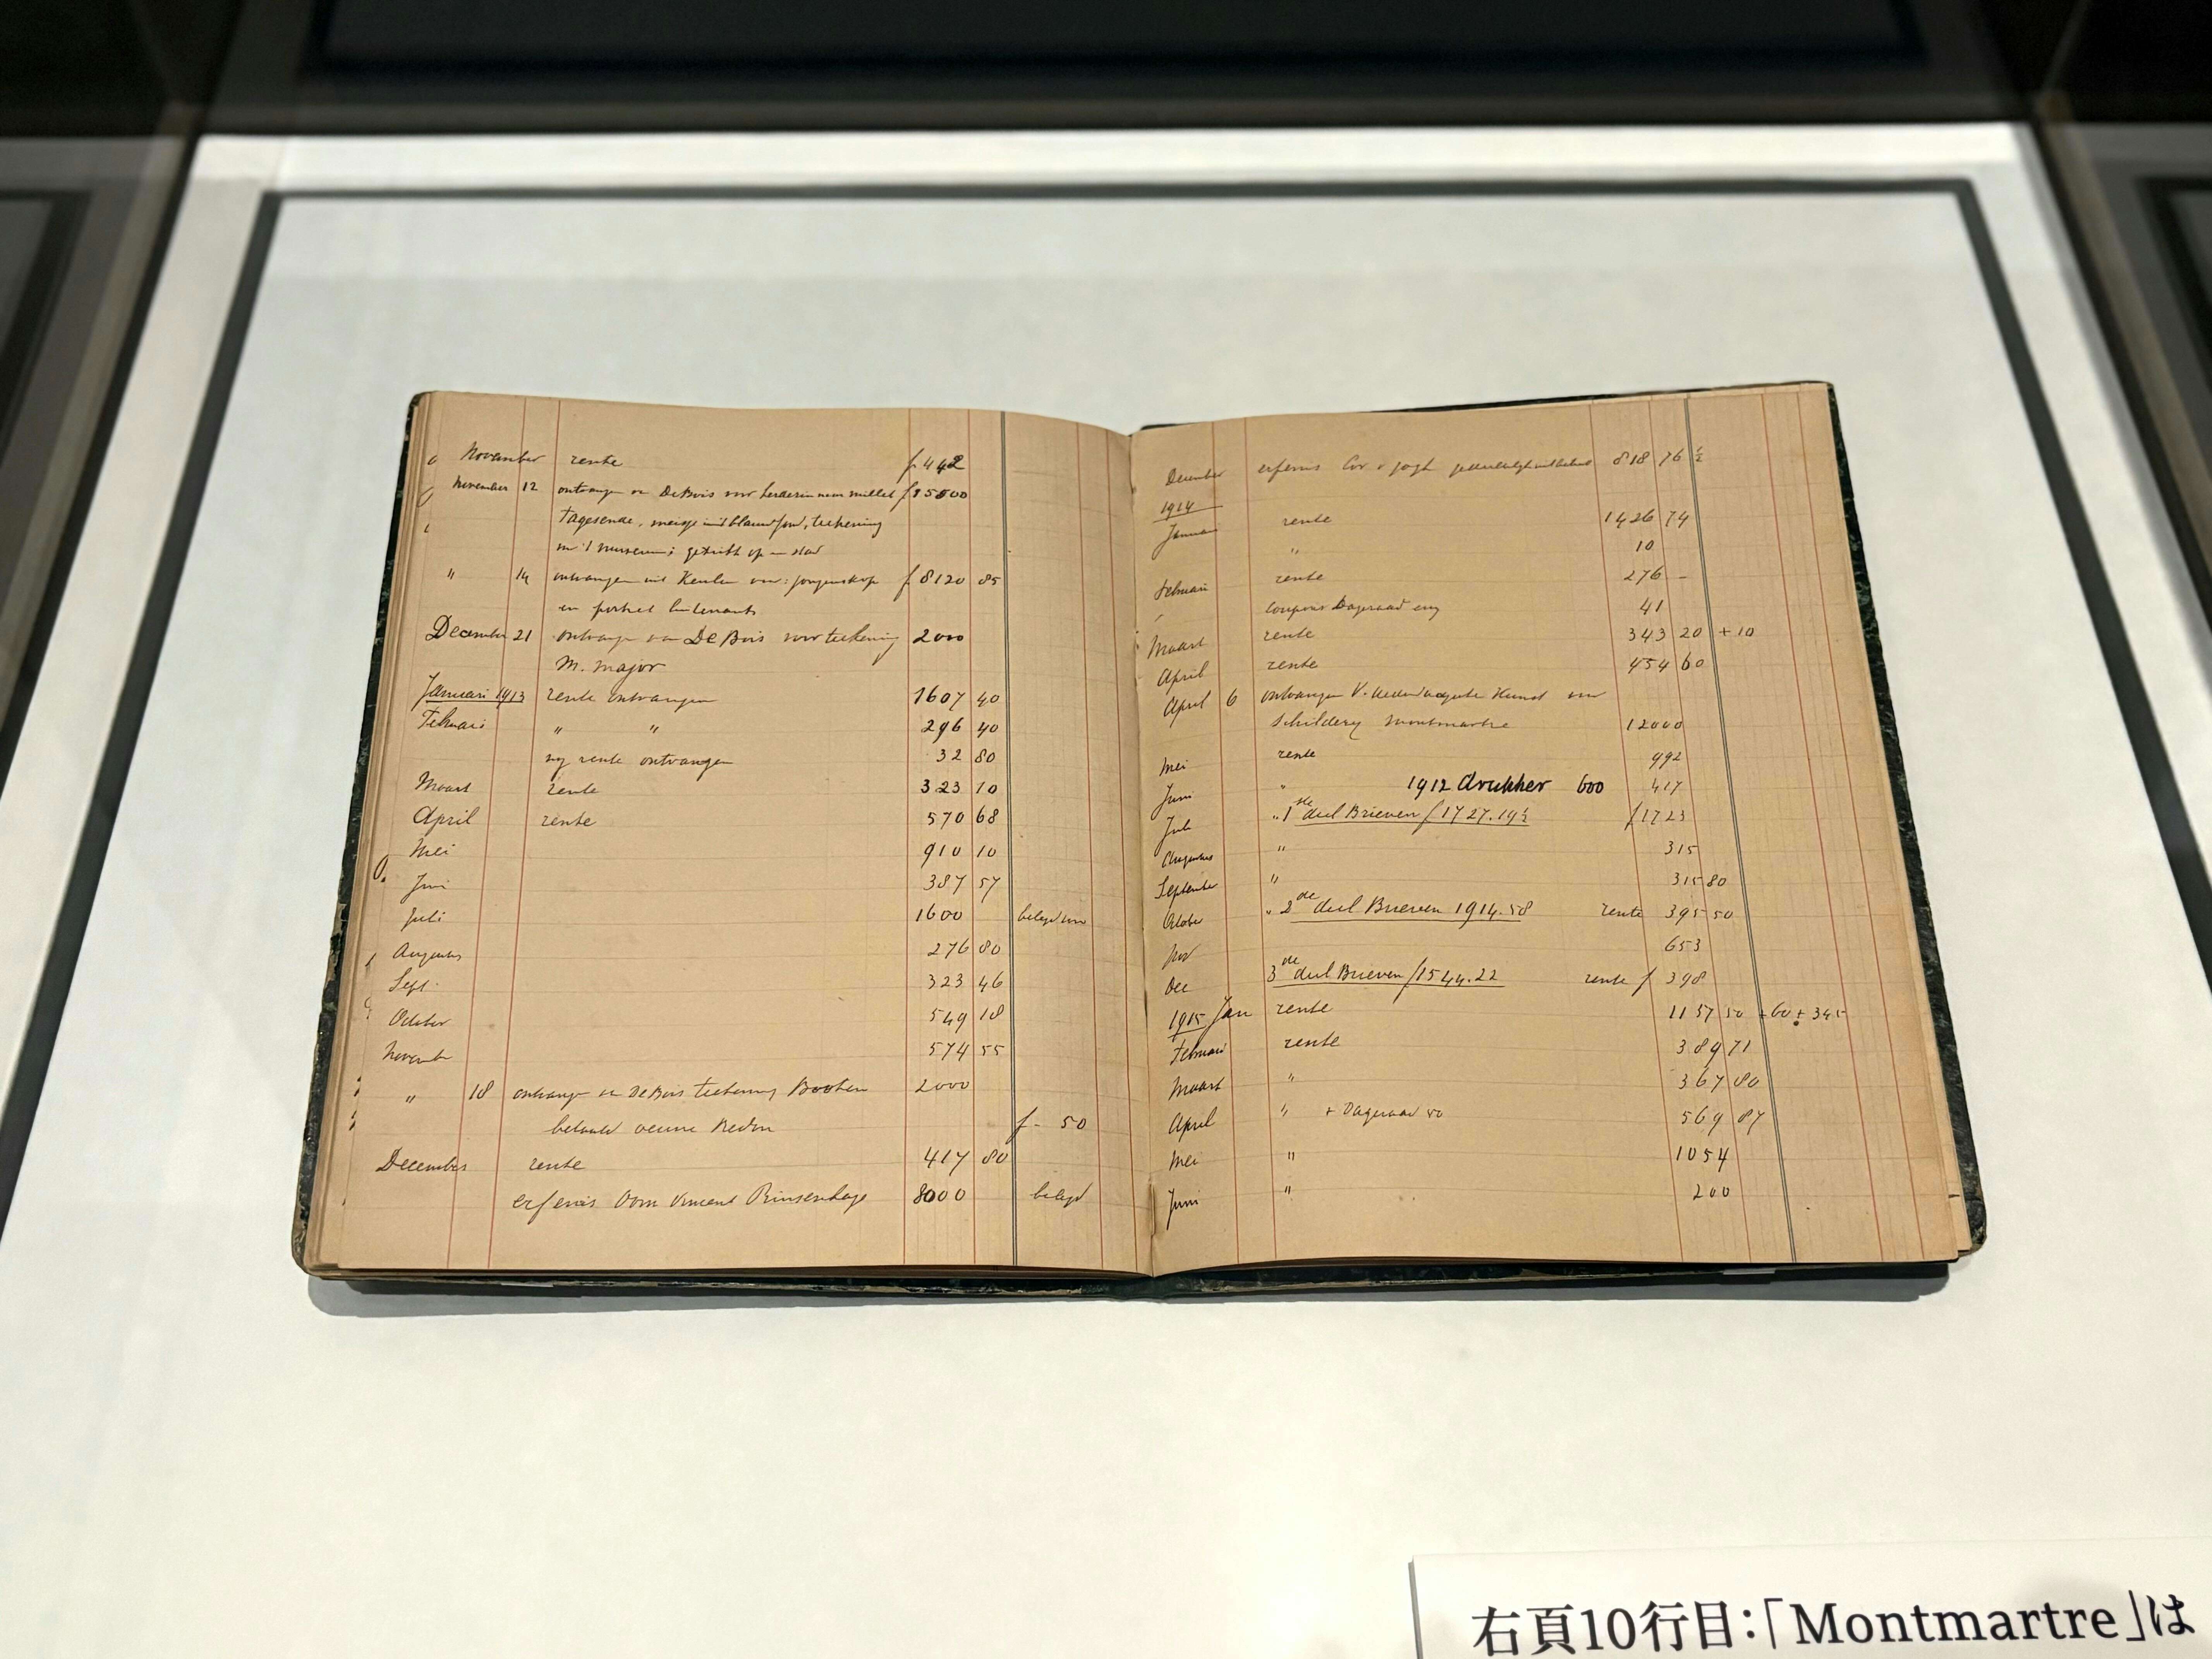 November rente f 442
November 12 ontvangen van De Bois voor herderin naar millet f 15000
dagesende, meisje uit blauw fond, teekening
in 't museum;
" 14 ontvangen uit Keulen voor: jongenskop f 8120 85
en portret luitenants
December 21 ontvangen van De Bois voor teekening 2000
M. major
Januari 1913 rente ontvangen 1607 40
Februari " " 296 40
rente ontvangen 32 80
Maart rente 323 10
April rente 570 68
Mei 910 10
Juni 387 57
Juli 1600 belegd
Augustus 276 80
Sept. 323 46
October 549 18
November 574 55
" 18 ontvangen van De Bois teekening Booten 2000
betaald veuve Redon f - 50
December rente 417 80
erfenis Oom Vincent Prinsenhage 8000 belegd
December erfenis Cor v gogh 818 76 ½
1914
Januari rente 1426 74
" 10
Februari rente 276 –
coupons Dageraad 41
Maart rente 343 20 + 10
April rente 454 60
April 6 ontvangen V. Kunst voor
Schildery Montmartre 12000
Mei rente 992
Juni " 1912 drukker 600 417
Juli " 1ste deel Brieven f 1727.19½ f 1723
Augustus " 315
September " 315 80
October " 2de deel Brieven 1914.58 rente 395 50
Nov 653
Dec 3de deel Brieven f 1544.22 rente f 398
1915 Jan rente 1157 50 + 60 + 345
Februari rente 389 71
Maart " 367 80
April " + Dageraad 50 569 87
Mei " 1054
Juni " 200
右頁10行目：「Montmartre」は